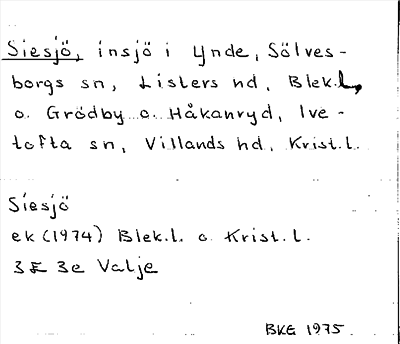 Siesjö, insjö i Ynde, Sölves-
borgs sn, Listers hd, Blek.l,
o. Grödby o. Håkanryd, Ive-
tofta sn, Villands hd, Krist.l.
Siesjö
ek (1974) Blek.l. o. Krist.l.
3E 3e Valje
BKG 1975